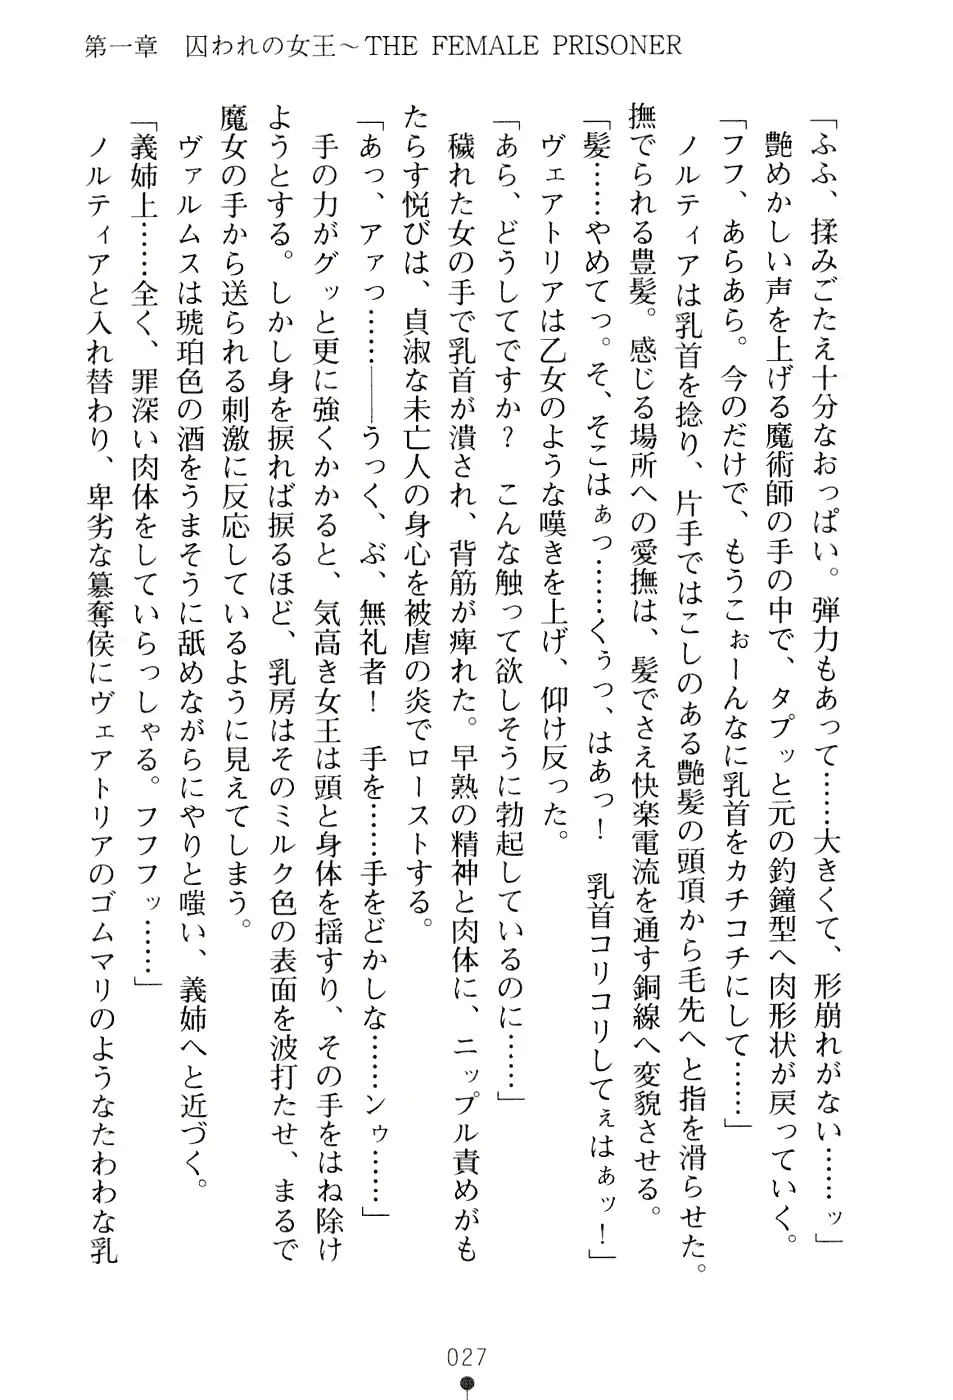 第一章　囚われの女王～THE FEMALE PRISONER
「ふふ、揉みごたえ十分なおっぱい。弾力もあって……大きくて、形崩れがない……ッ」
艶めかしい声を上げる魔術師の手の中で、タプッと元の釣鐘型へ肉形状が戻っていく。
「フフ、あらあら。今のだけで、もうこぉーんなに乳首をカチコチにして……」
ノルティアは乳首を捻り、片手ではこしのある艶髪の頭頂から毛先へと指を滑らせた。
撫でられる豊髪。感じる場所への愛撫は、髪でさえ快楽電流を通す銅線へ変貌させる。
「髪……やめてっ。そ、そこはぁっ……くぅっ、はあっ！　乳首コリコリしてぇはぁッ！」
ヴェアトリアは乙女のような嘆きを上げ、仰け反った。
「あら、どうしてですか？　こんな触って欲しそうに勃起しているのに……」
穢れた女の手で乳首が潰され、背筋が痺れた。早熟の精神と肉体に、ニップル責めがも
たらす悦びは、貞淑な未亡人の身心を被虐の炎でローストする。
「あっ、アァっ……――うっく、ぶ、無礼者！　手を……手をどかしな……ンゥ……」
手の力がグッと更に強くかかると、気高き女王は頭と身体を揺すり、その手をはね除け
ようとする。しかし身を捩れば捩るほど、乳房はそのミルク色の表面を波打たせ、まるで
魔女の手から送られる刺激に反応しているように見えてしまう。
ヴァルムスは琥珀色の酒をうまそうに舐めながらにやりと嗤い、義姉へと近づく。
「義姉上……全く、罪深い肉体をしていらっしゃる。フフフッ……」
ノルティアと入れ替わり、卑劣な簒奪侯にヴェアトリアのゴムマリのようなたわわな乳
027